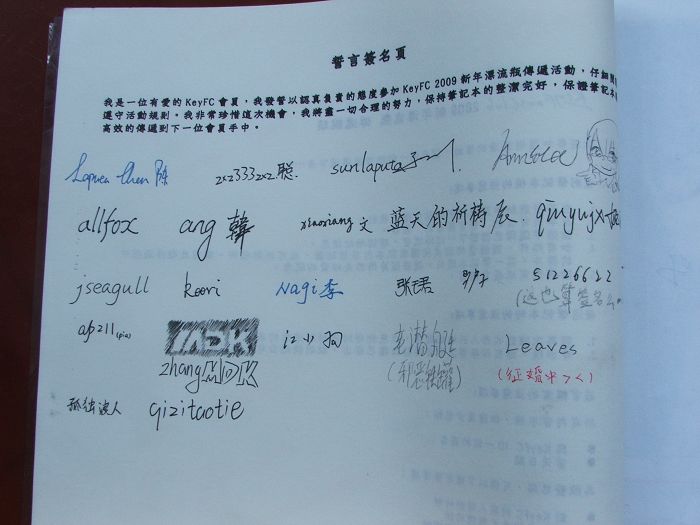 誓言簽名頁
我是一位有愛的KeyFC會員，我發誓以認真負責的態度參加KeyFC 2009新年漂流瓶傳遞活動，仔細
遵守活動規則。我非常珍惜這次機會，我將盡一切合理的努力，保持筆記本的整潔完好，保證筆記本
高效的傳遞到下一位會員手中。
Chen 陈 2x23332x2.聪 sunlaputa
allfox ang 韓 xiaoxiang 文 蓝天的祈祷 辰
jseagull Kaori Nagi 李 张珺 51226622
(这也算签名么
ap211(pia) MDK 江小狗 老潜艇 Leaves
zhang MDK (征婚中><)
孤独浪人 qizitaotie